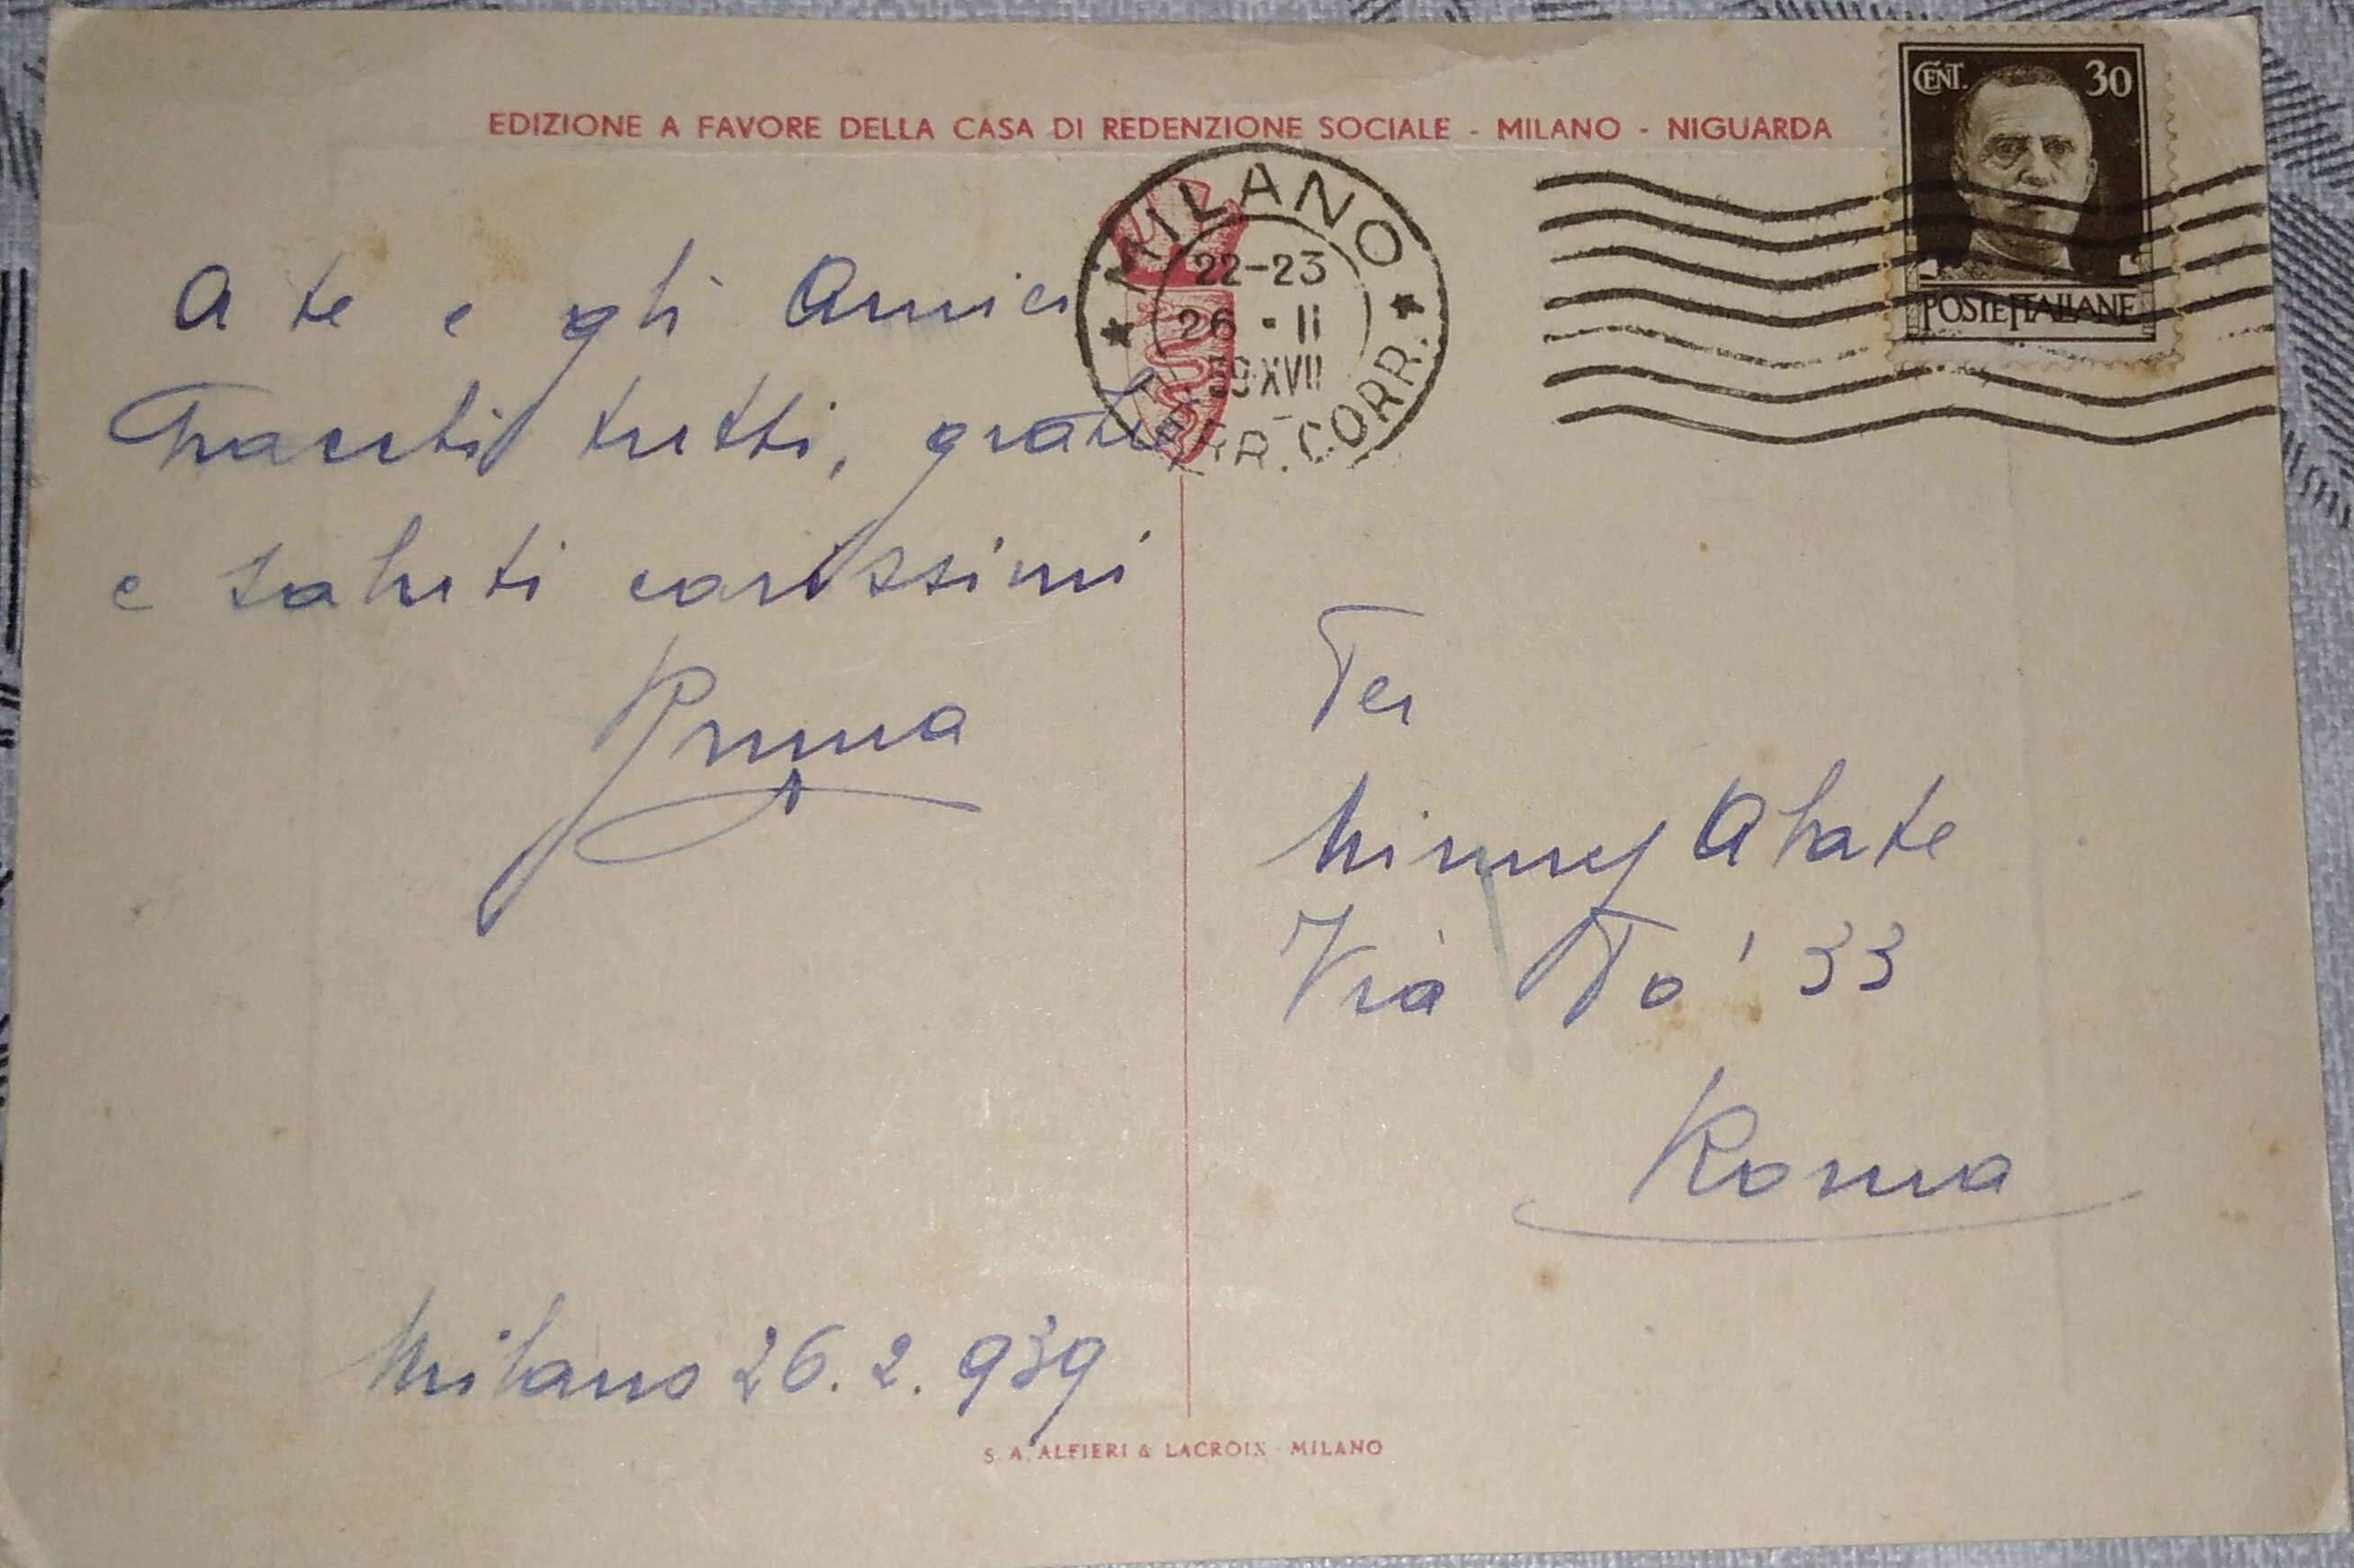 EDIZIONE A FAVORE DELLA CASA DI REDENZIONE SOCIALE - MILANO - NIGUARDA
CENT. 30
POSTE ITALIANE
MILANO
22-23
26 - II
39 XVII
CORR.
A te e gli Amici
tutti,
e saluti carissimi
Per
Minny Abate
Via Po' 33
Roma
Milano 26.2.939
S. A. ALFIERI & LACROIX - MILANO